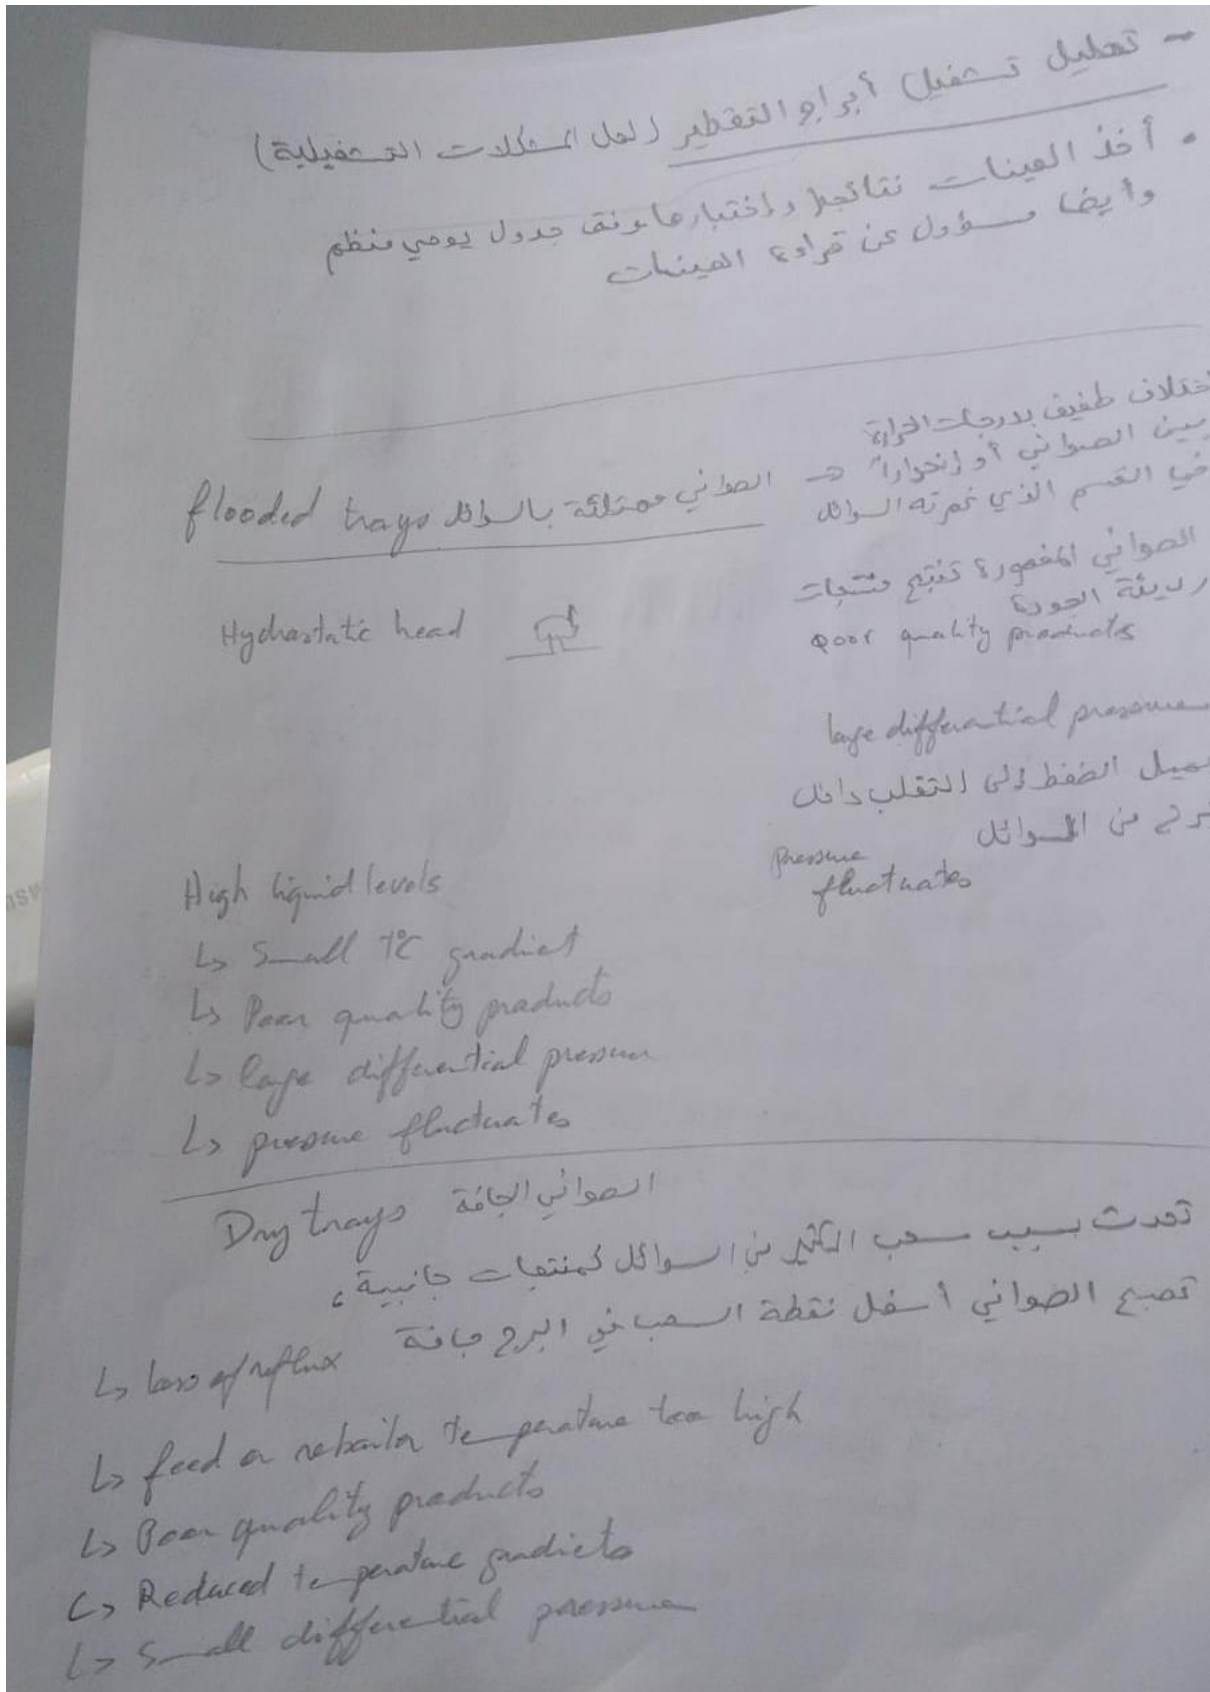 - تحليل تشغيل أبراج التقطير (لحل المشكلات التشغيلية)
• أخذ العينات نتائجها واختبارها وفق جدول يومي منظم
وأيضا مسؤول عن قراءة العينات
flooded trays الصواني ممتلئة بالسوائل → اختلاف طفيف بدرجات الحرارة
بين الصواني أو إنحداراً
في القسم الذي غمرته السوائل
الصواني المغمورة تنتج منتجات
رديئة الجودة
poor quality products
Hydrostatic head
large differential pressure
يميل الضغط إلى التقلب داخل
من السوائل
pressure
fluctuates
High liquid levels
↳ Small T°C gradient
↳ Poor quality products
↳ large differential pressure
↳ pressure fluctuates
Dry trays الصواني الجافة
تحدث بسبب سحب الكثير من السوائل كمنتجات جانبية،
تصبح الصواني أسفل نقطة السحب في البرج جافة
↳ loss of reflux
↳ feed or reboiler temperature too high
↳ Poor quality products
↳ Reduced temperature gradients
↳ Small differential pressure